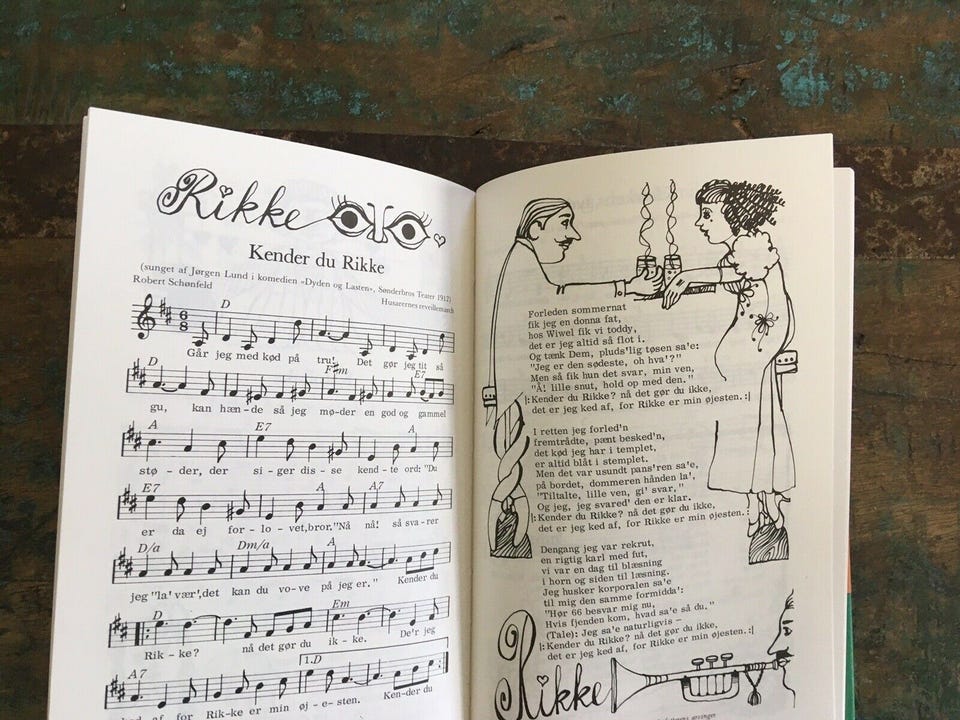 Rikke
Kender du Rikke
(sunget af Jørgen Lund i komedien »Dyden og Lasten«, Sønderbros Teater 1912)
Robert Schønfeld
Husarernes reveillemarch
D
Går jeg med kød på tru! Det gør jeg tit så
D F#m E7
gu, kan hæn-de så jeg mø-der en god og gammel
A E7 A
stø-der, der si-ger dis-se kend-te ord: "Du
E7 A A7
er da ej for-lo-vet, bror." Nå nå! så sva-rer
D/a Dm/a A
jeg "la' vær', det kan du vo-ve på jeg er." Kender du
D Em
Rik-ke? nå det gør du ik-ke. De'r jeg
A7 1.D
ked af, for Rik-ke er min øj-e-sten. Ken-der du
Forleden sommernat
fik jeg en donna fat,
hos Wiwel fik vi toddy,
det er jeg altid så flot i.
Og tænk Dem, pluds'lig tøsen sa'e:
"Jeg er den sødeste, oh hva'?"
Men så fik hun det svar, min ven,
"Å! lille snut, hold op med den."
|:Kender du Rikke? nå det gør du ikke,
det er jeg ked af, for Rikke er min øjesten.:|
I retten jeg forled'n
fremtrådte, pænt besked'n,
det kød jeg har i templet,
er altid blåt i stemplet.
Men det var usundt pans'ren sa'e,
på bordet, dommeren hånden la',
"Tiltalte, lille ven, gi' svar,"
Og jeg, jeg svared' den er klar.
|:Kender du Rikke? nå det gør du ikke,
det er jeg ked af, for Rikke er min øjesten.:|
Dengang jeg var rekrut,
en rigtig karl med fut,
vi var en dag til blæsning
i horn og siden til læsning.
Jeg husker korporalen sa'e
til mig den samme formidda':
"Hør 66 besvar mig nu,
Hvis fjenden kom, hvad sa'e så du."
(Tale): Jeg sa'e naturligvis –
|:Kender du Rikke? nå det gør du ikke,
det er jeg ked af, for Rikke er min øjesten.:|
Rikke